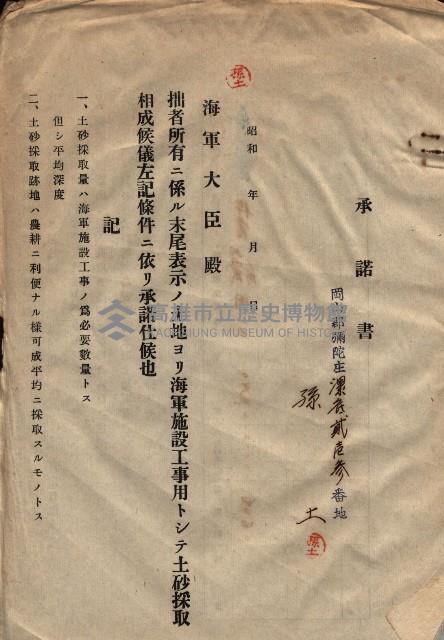 承諾書
岡山郡彌陀庄漯底貳壱参番地
孫 土
昭和 年 月 日
海軍大臣殿
拙者所有ニ係ル末尾表示ノ土地ヨリ海軍施設工事用トシテ土砂採取
相成候儀左記條件ニ依リ承諾仕候也
記
一、土砂採取量ハ海軍施設工事ノ爲必要數量トス
但シ平均深度
二、土砂採取跡地ハ農耕ニ利便ナル樣可成平均ニ採取スルモノトス
高雄市立歷史博物館
KAOHSIUNG MUSEUM OF HISTORY